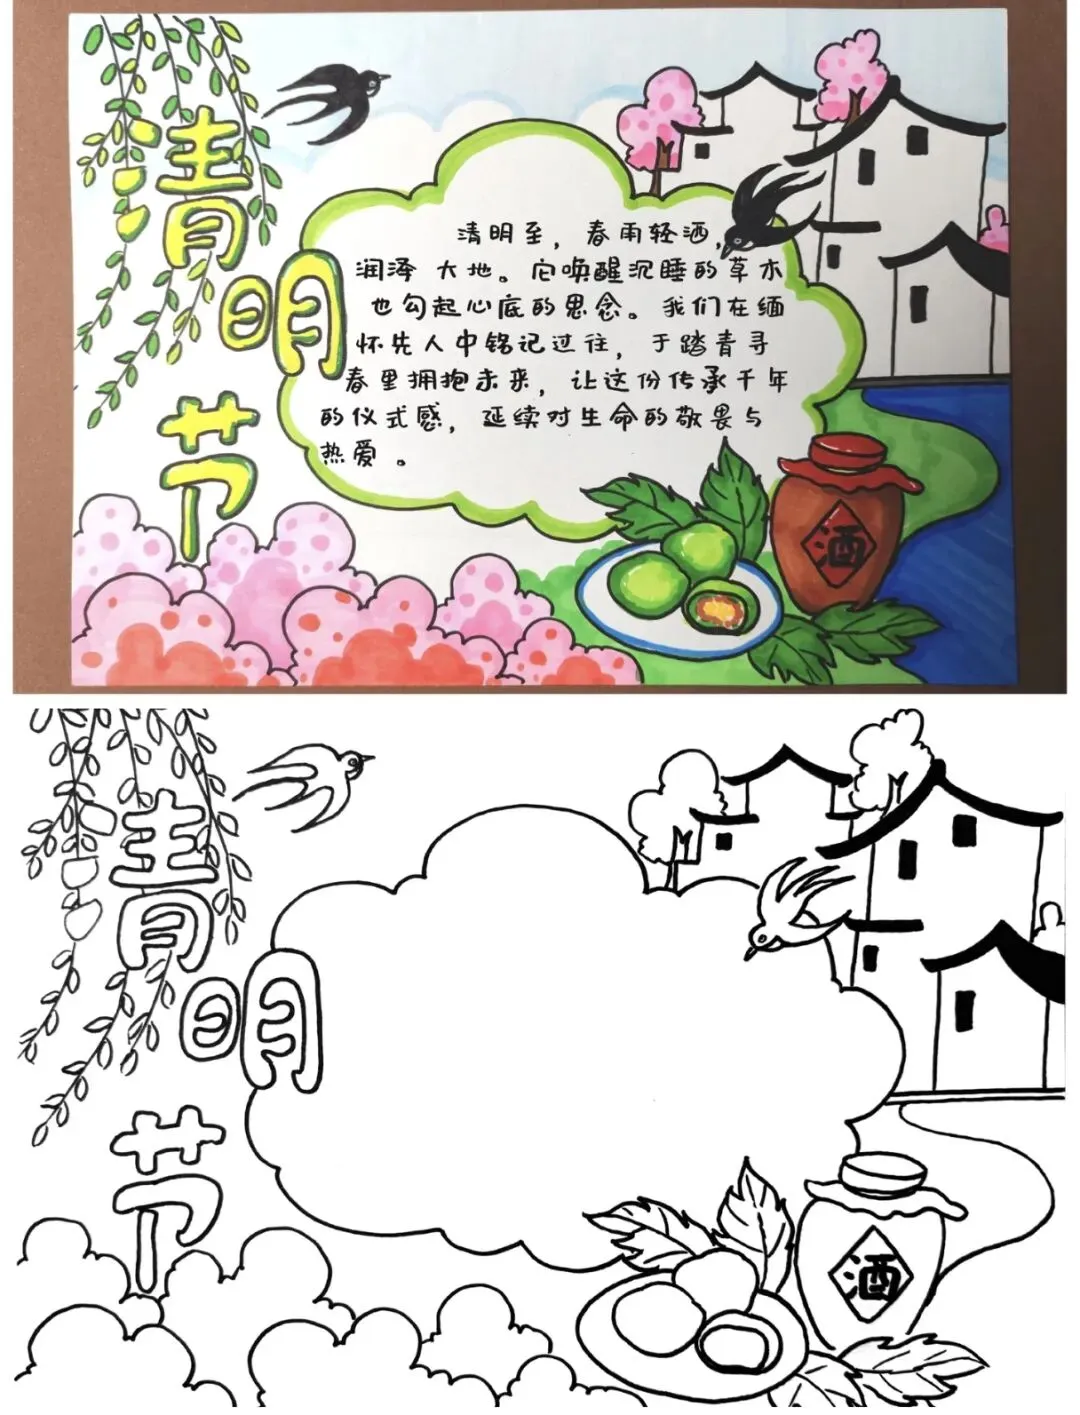 清明节
清明至，春雨轻洒，
润泽大地。它唤醒沉睡的草木
也勾起心底的思念。我们在缅
怀先人中铭记过往，于踏青寻
春里拥抱未来，让这份传承千年
的仪式感，延续对生命的敬畏与
热爱。
酒
清明节
酒